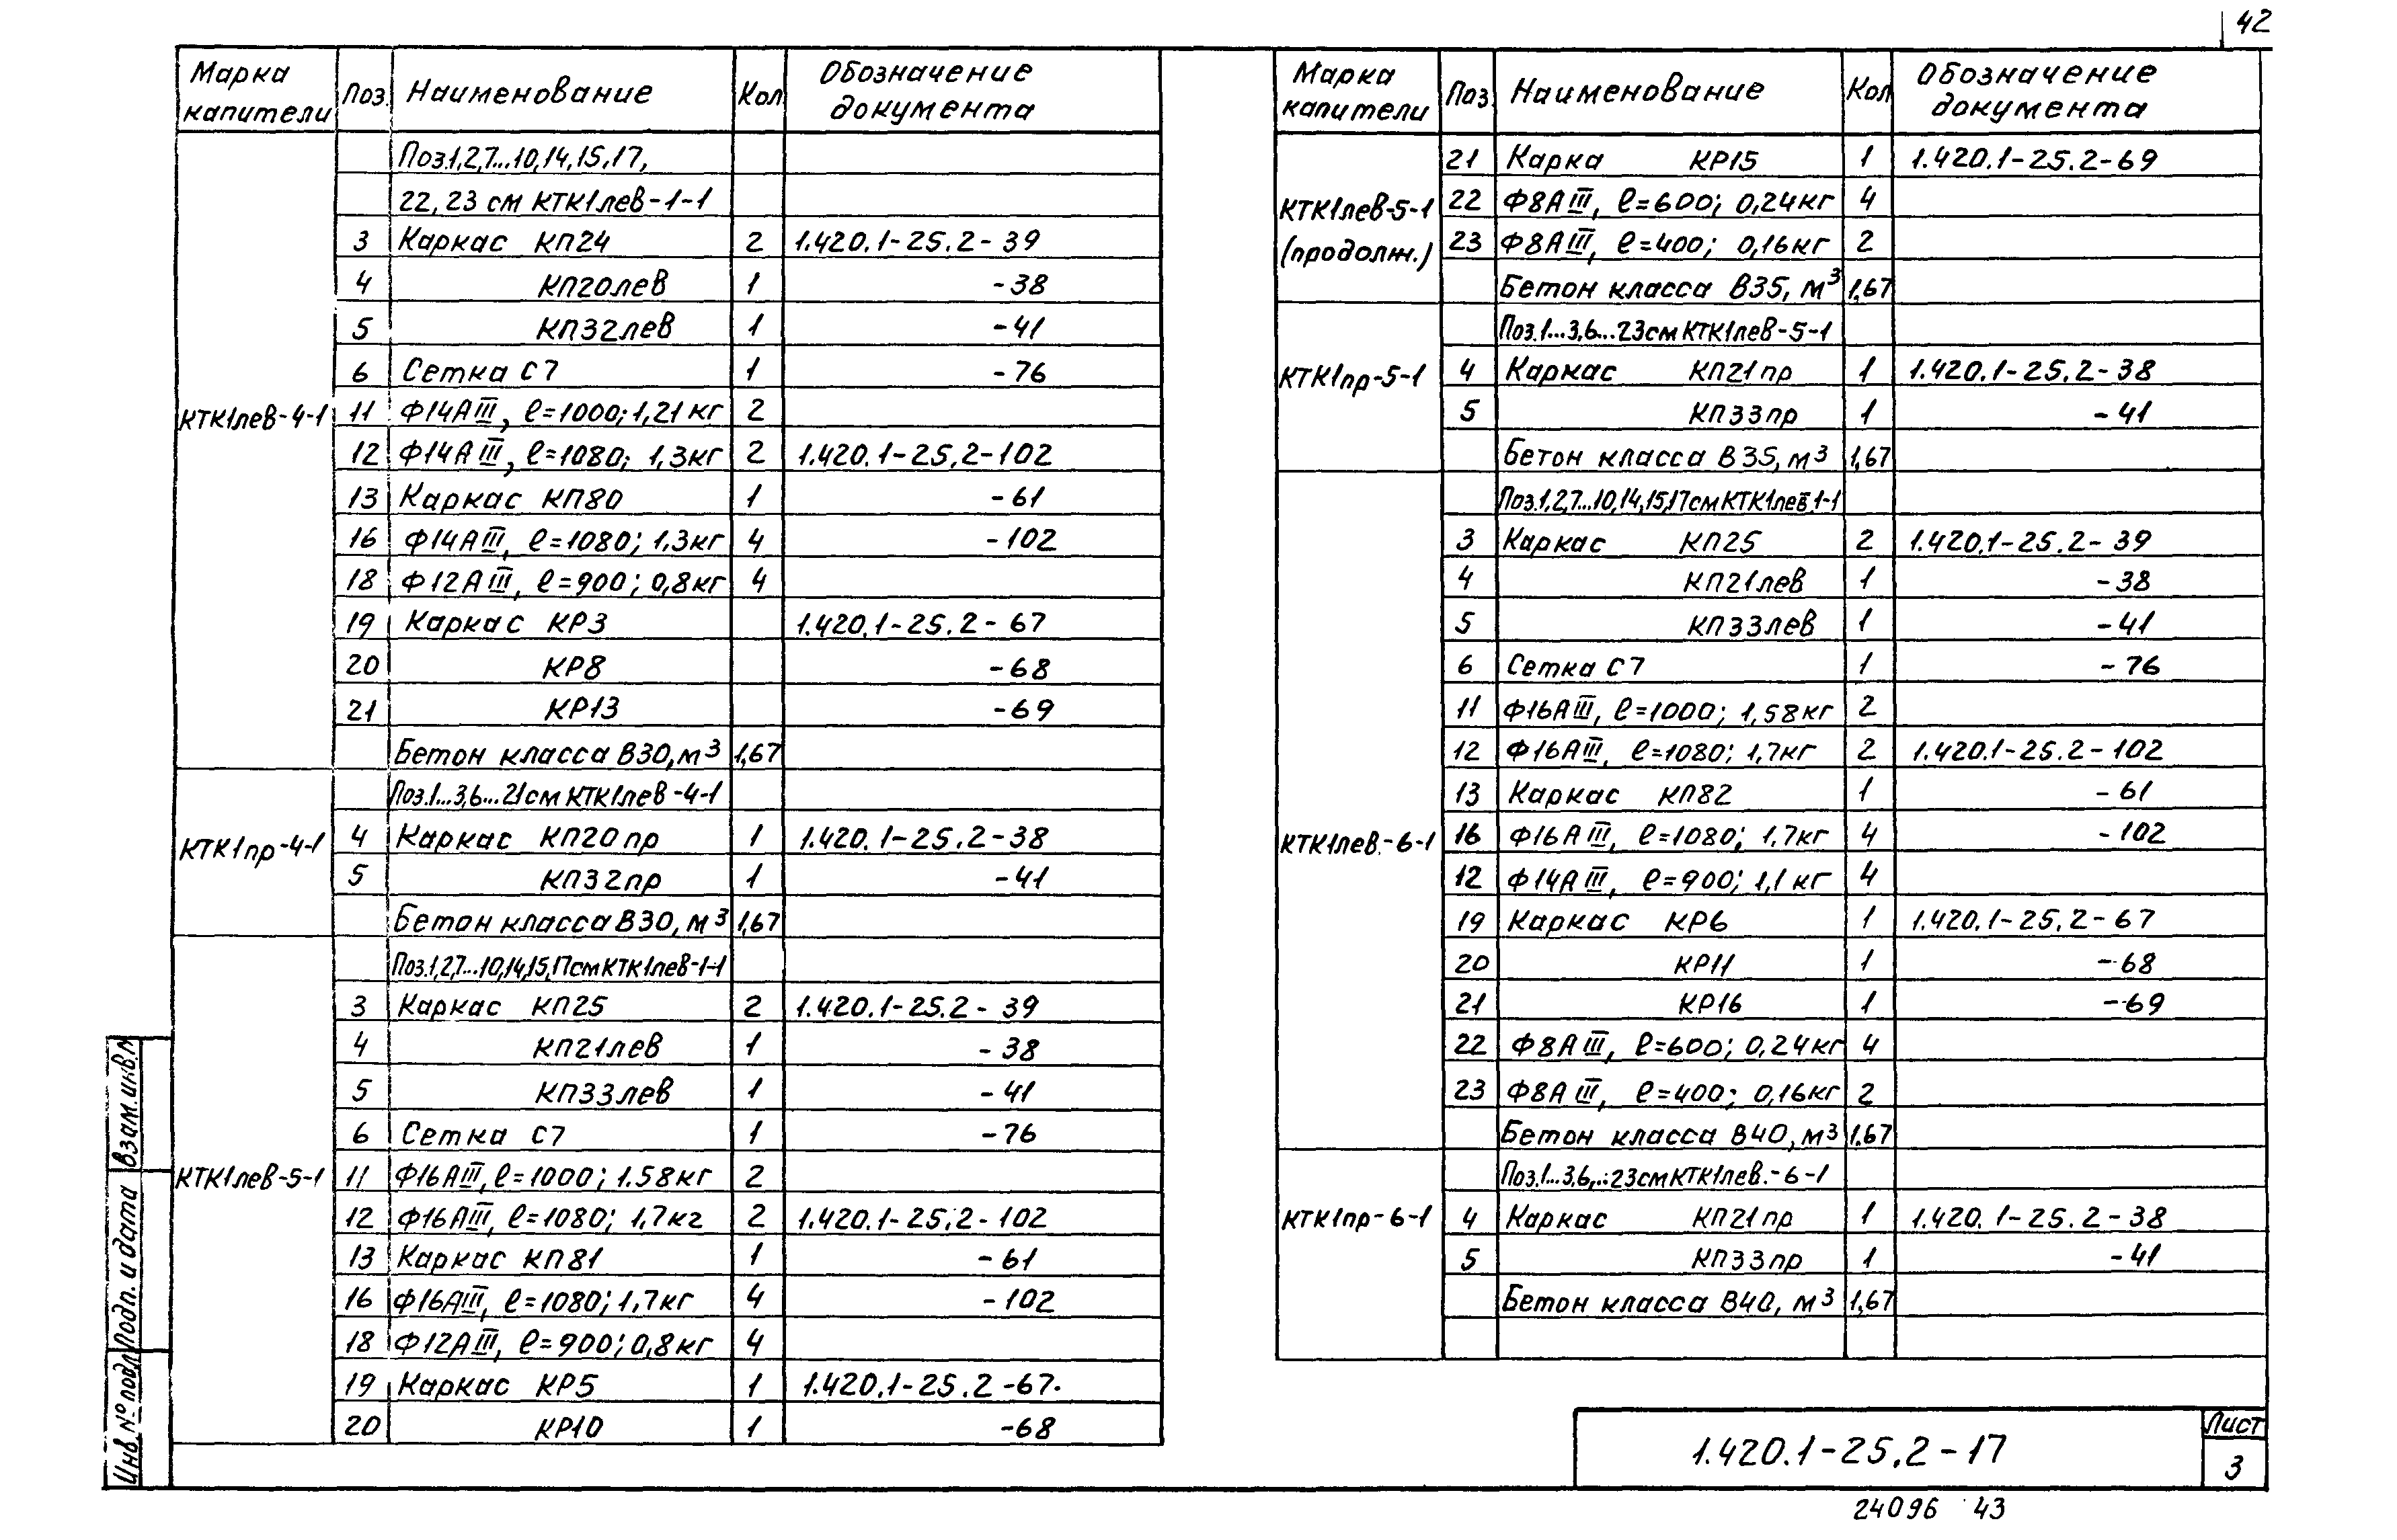 42
Марка капители Поз. Наименование Кол Обозначение документа
Поз.1,2,7...10,14,15,17,
22,23 см КТК1лев-1-1
3 Каркас КП24 2 1.420.1-25.2-39
4 КП20лев 1 -38
5 КП32лев 1 -41
6 Сетка С7 1 -76
КТК1лев-4-1 11 Ф14АIII, ℓ=1000; 1,21кг 2
12 Ф14АIII, ℓ=1080; 1,3кг 2 1.420.1-25.2-102
13 Каркас КП80 1 -61
16 Ф14АIII, ℓ=1080; 1.3кг 4 -102
18 Ф12АIII, ℓ=900; 0,8кг 4
19 Каркас КР3 1.420.1-25.2-67
20 КР8 -68
21 КР13 -69
Бетон класса В30, м³ 1,67
Поз.1...3,6...21см КТК1лев-4-1
КТК1пр-4-1 4 Каркас КП20пр 1 1.420.1-25.2-38
5 КП32пр 1 -41
Бетон класса В30, м³ 1,67
Поз.1,2,7...10,14,15,17см КТК1лев-1-1
3 Каркас КП25 2 1.420.1-25.2-39
4 КП21лев 1 -38
5 КП33лев 1 -41
6 Сетка С7 1 -76
КТК1лев-5-1 11 Ф16АIII, ℓ=1000; 1.58кг 2
12 Ф16АIII, ℓ=1080; 1,7кг 2 1.420.1-25.2-102
13 Каркас КП81 1 -61
16 Ф16АIII, ℓ=1080; 1,7кг 4 -102
18 Ф12АIII, ℓ=900; 0,8кг 4
19 Каркас КР5 1 1.420.1-25.2-67.
20 КР10 1 -68
Марка капители Поз Наименование Кол Обозначение документа
21 Карка КР15 1 1.420.1-25.2-69
КТК1лев-5-1 22 Ф8АIII, ℓ=600; 0,24кг 4
(продолж.) 23 Ф8АIII, ℓ=400; 0,16кг 2
Бетон класса В35, м³ 1,67
Поз.1...3,6...23см КТК1лев-5-1
КТК1пр-5-1 4 Каркас КП21пр 1 1.420.1-25.2-38
5 КП33пр 1 -41
Бетон класса В35, м³ 1,67
Поз.1,2,7...10,14,15,17см КТК1лев.1-1
3 Каркас КП25 2 1.420.1-25.2-39
4 КП21лев 1 -38
5 КП33лев 1 -41
6 Сетка С7 1 -76
11 Ф16АIII, ℓ=1000; 1,58кг 2
12 Ф16АIII, ℓ=1080; 1,7кг 2 1.420.1-25.2-102
13 Каркас КП82 1 -61
КТК1лев.-6-1 16 Ф16АIII, ℓ=1080; 1.7кг 4 -102
12 Ф14АIII, ℓ=900; 1,1кг 4
19 Каркас КР6 1 1.420.1-25.2-67
20 КР11 1 -68
21 КР16 1 -69
22 Ф8АIII, ℓ=600; 0,24кг 4
23 Ф8АIII, ℓ=400; 0,16кг 2
Бетон класса В40, м³ 1.67
Поз.1...3,6,..23см КТК1лев.-6-1
КТК1пр-6-1 4 Каркас КП21пр 1 1.420.1-25.2-38
5 КП33пр 1 -41
Бетон класса В40, м³ 1,67
Инв.№подл Подп. и дата Взам.инв.№
1.420.1-25.2-17
Лист
3
24096 43